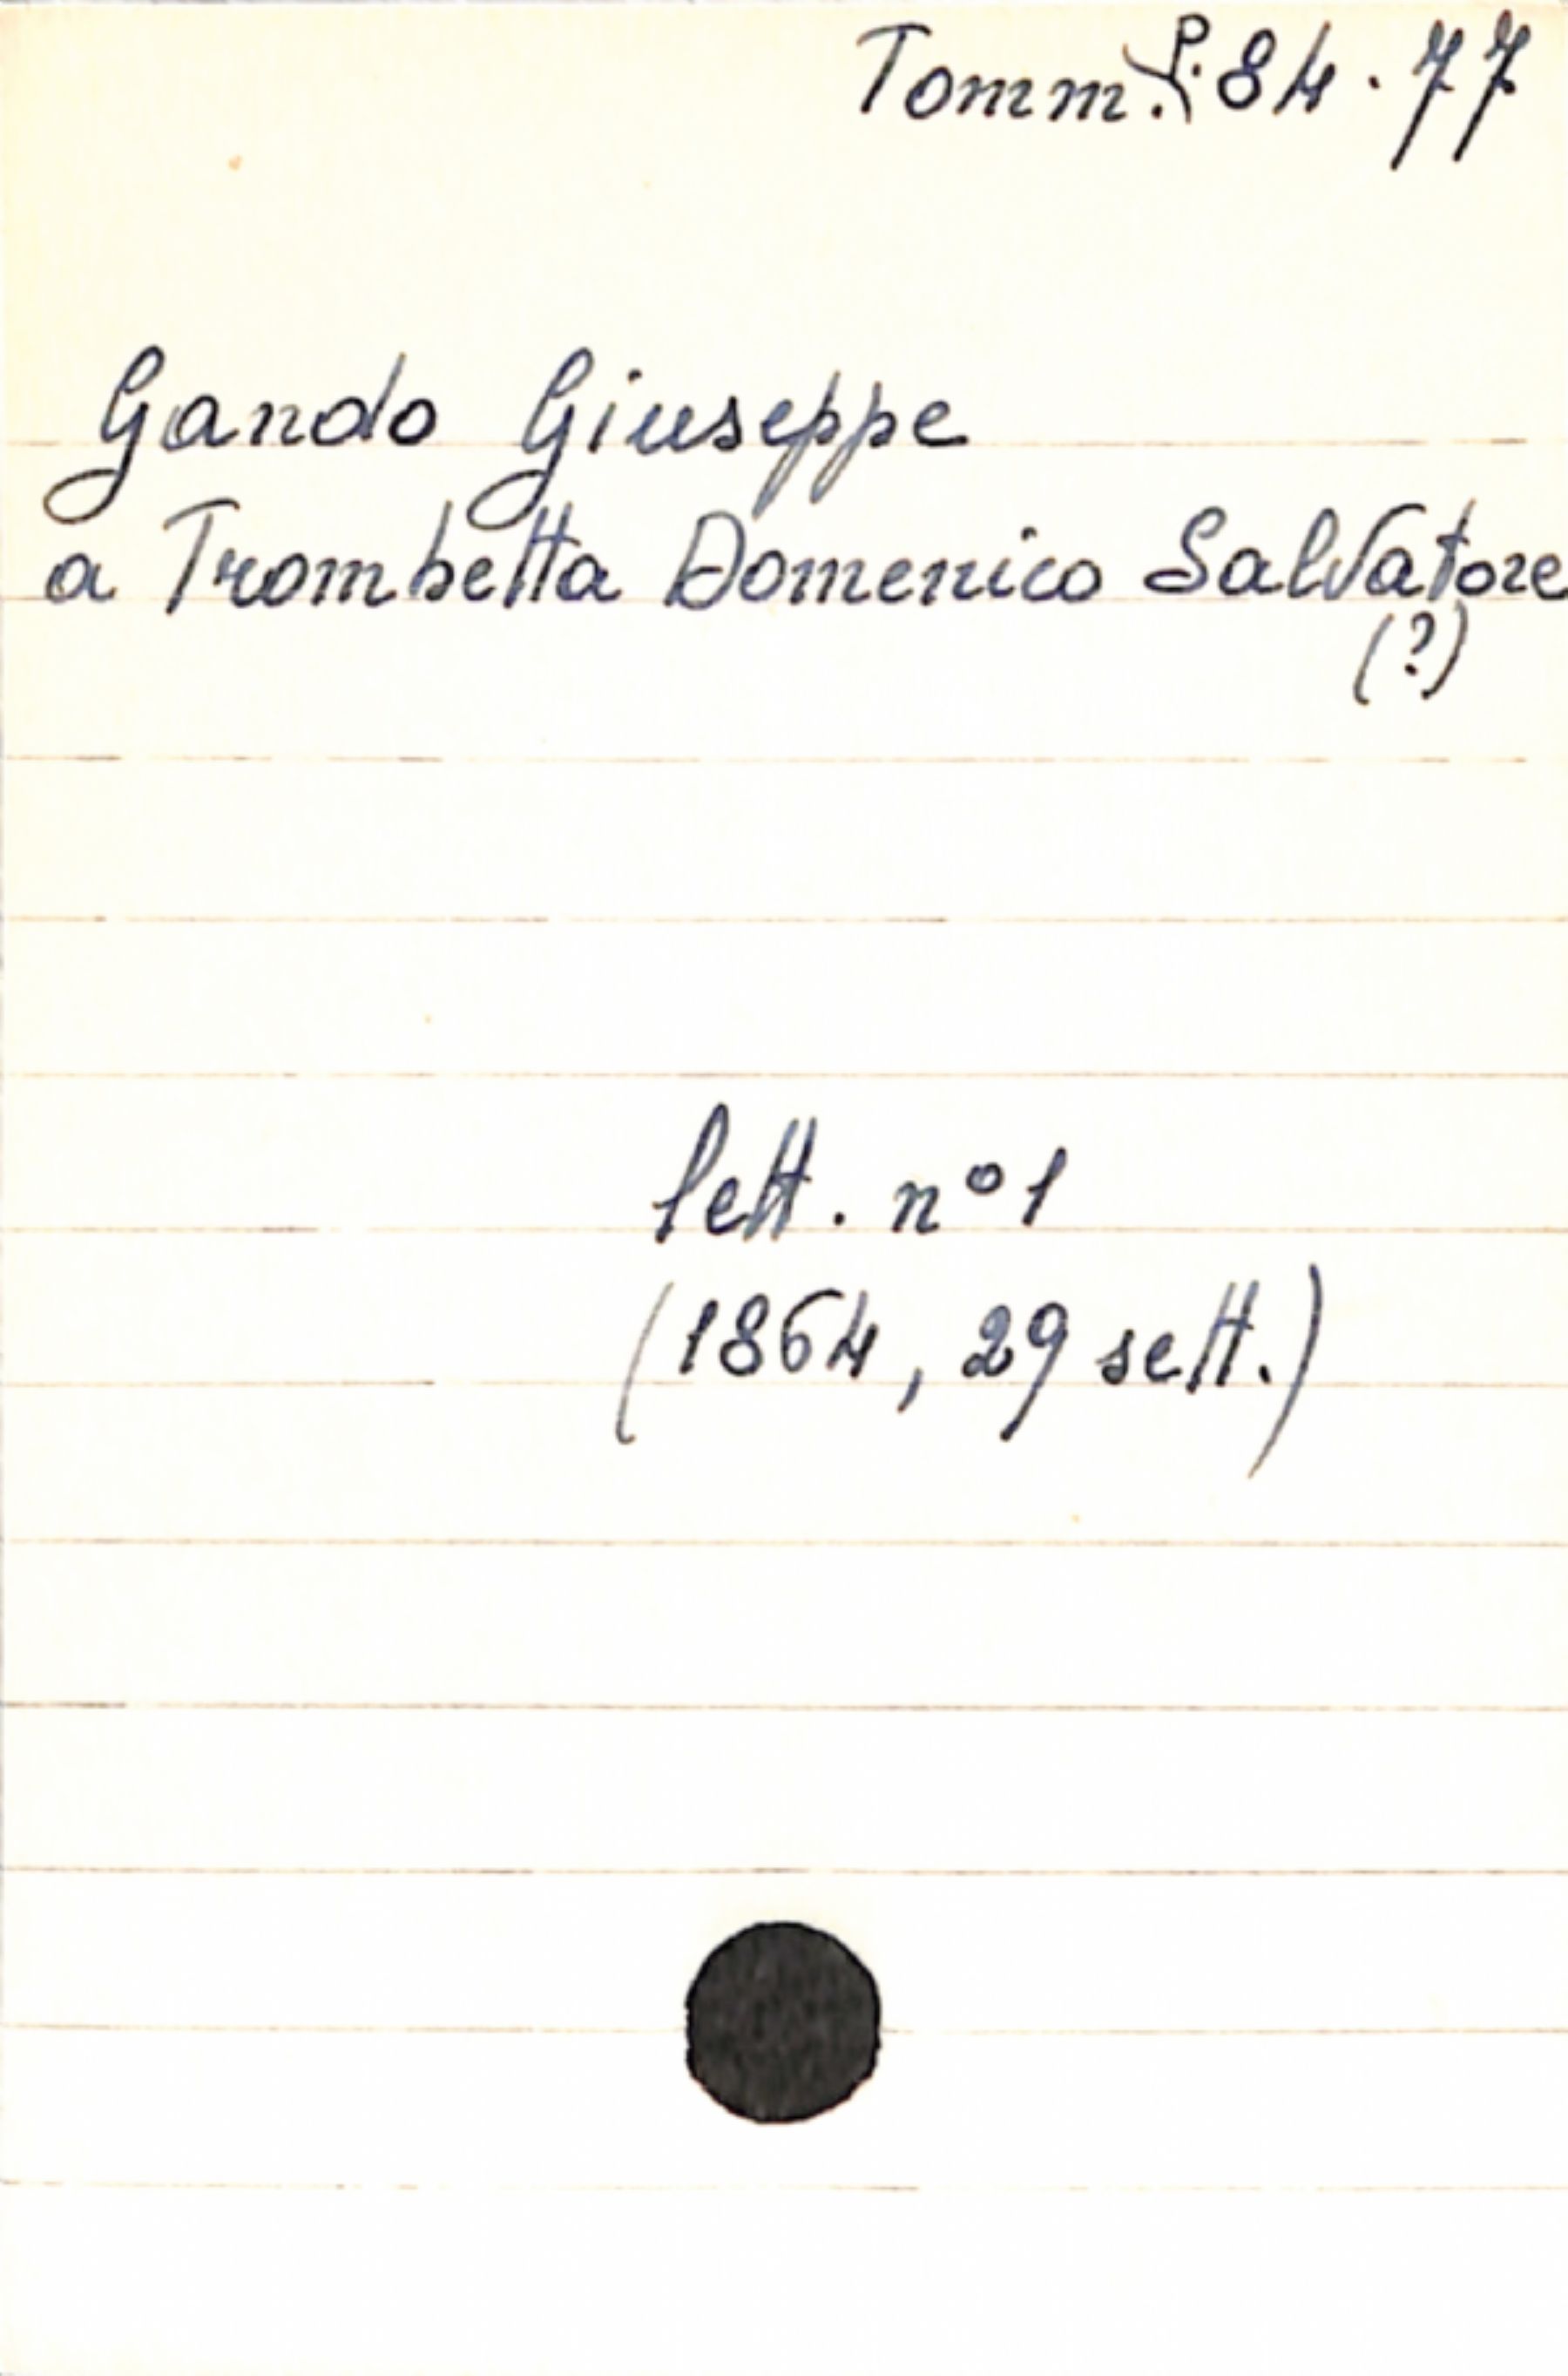 Tomm. P. 84.77
Gando Giuseppe
a Trombetta Domenico Salvatore
(?)
lett. n° 1
(1864, 29 sett.)